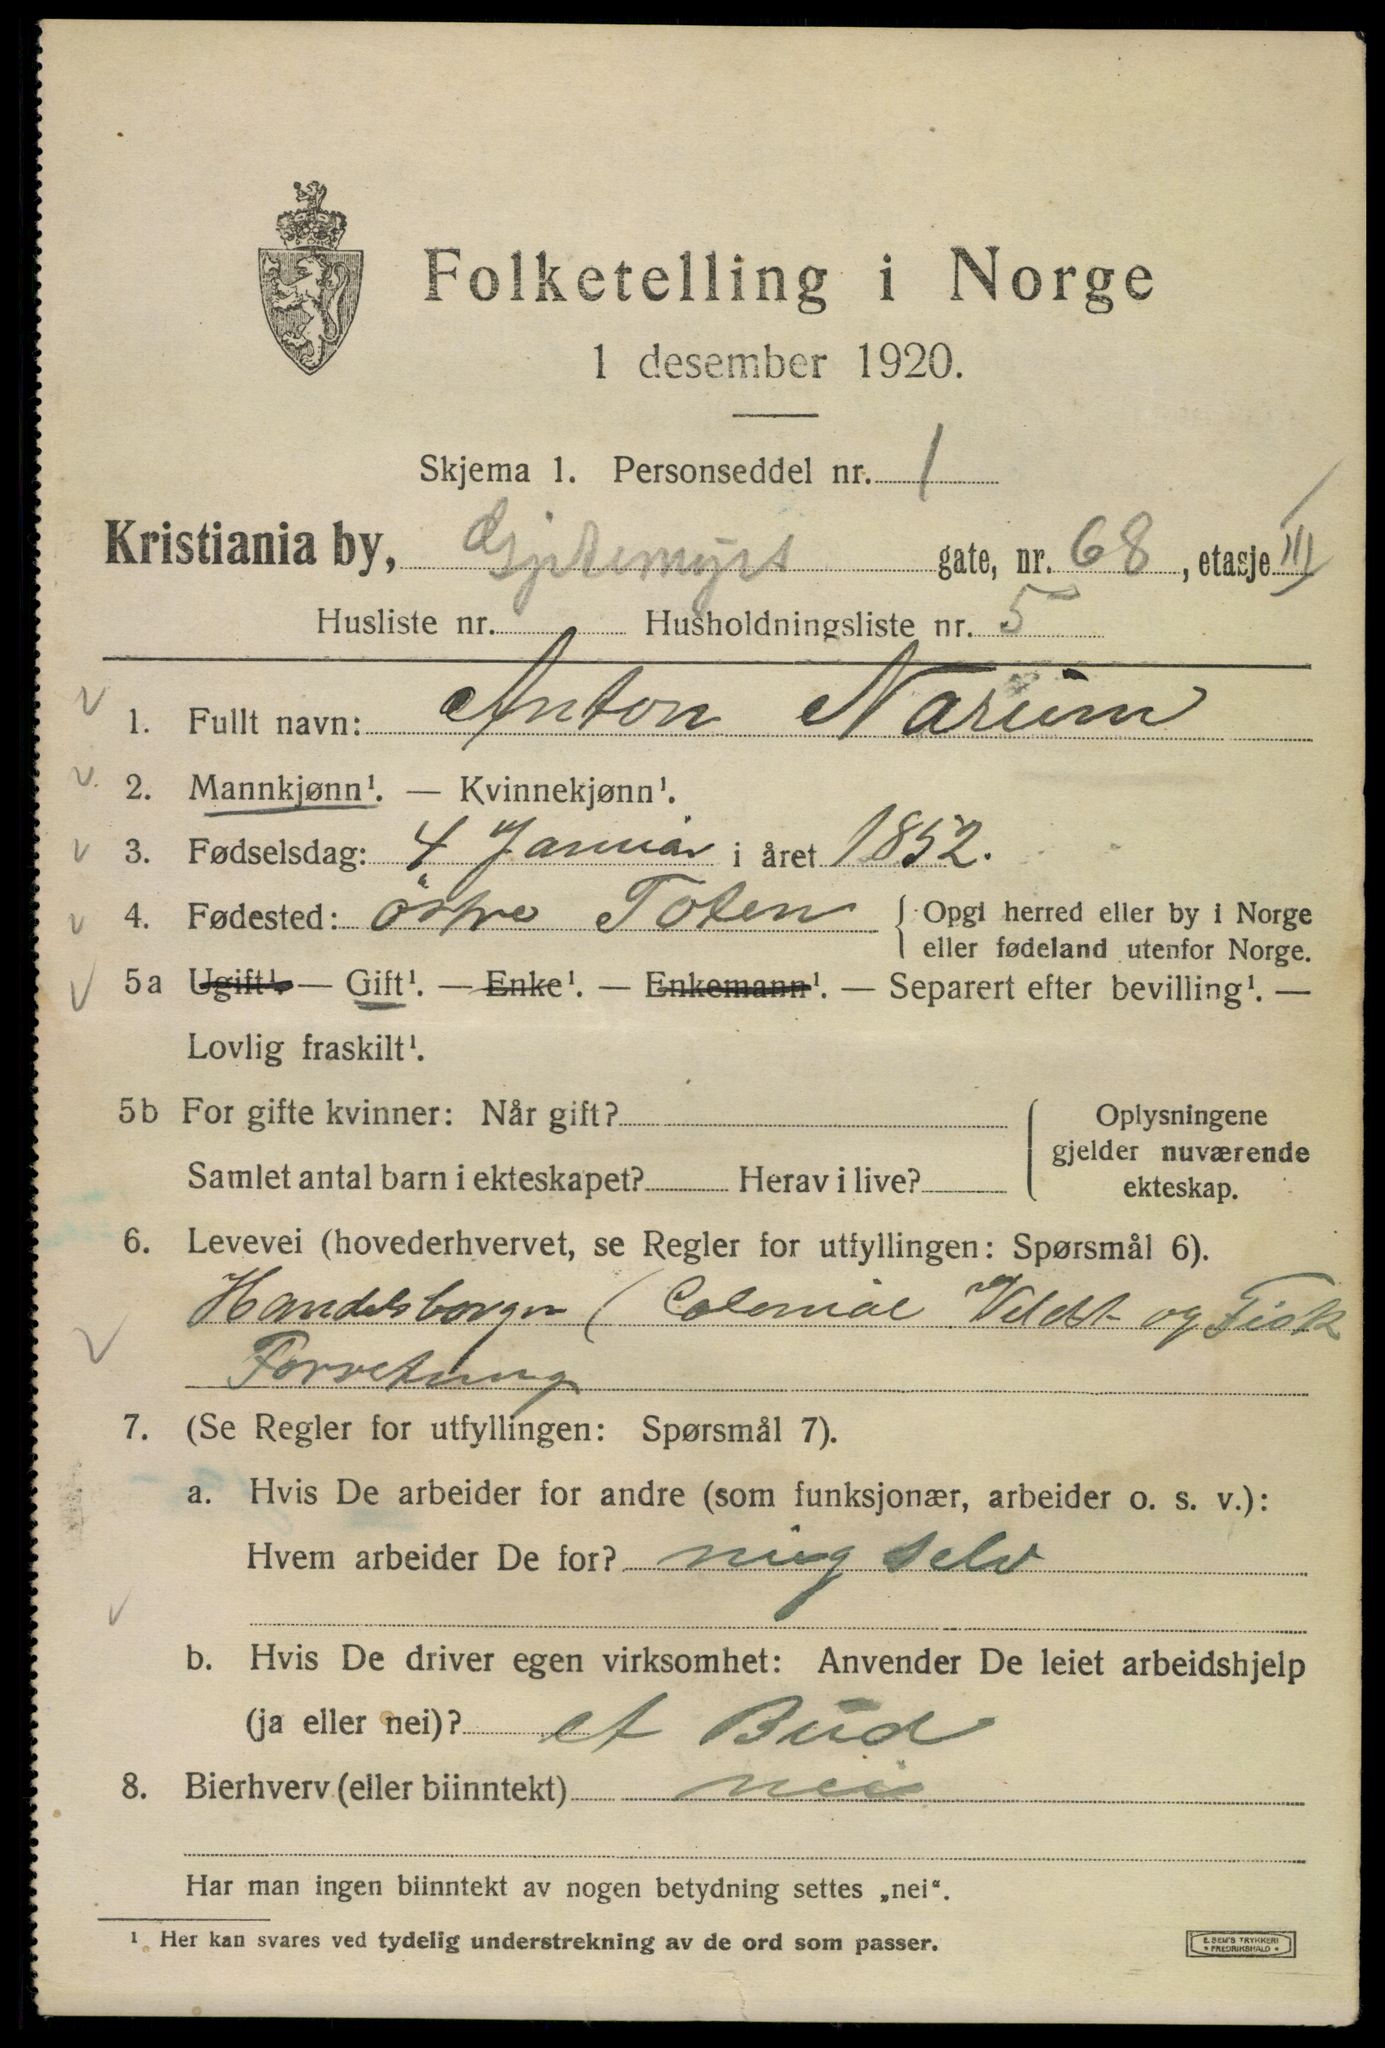 Folketelling i Norge
1 desember 1920.
Skjema 1. Personseddel nr. 1
Kristiania by, Gjetemyrs gate, nr. 68, etasje III
Husliste nr. Husholdningsliste nr. 5
1. Fullt navn: Anton Narum
2. Mannkjønn¹. — Kvinnekjønn¹.
3. Fødselsdag: 4 Januar i året 1852.
4. Fødested: Östre Toten { Opgi herred eller by i Norge
eller fødeland utenfor Norge.
5a Ugift¹. — Gift¹. — Enke¹. — Enkemann¹. — Separert efter bevilling¹. —
Lovlig fraskilt¹.
5b For gifte kvinner: Når gift? { Oplysningene
gjelder nuværende
Samlet antal barn i ekteskapet? Herav i live?
ekteskap.
6. Levevei (hovederhvervet, se Regler for utfyllingen: Spørsmål 6).
Handelsborger ( Colonial Vildt og Fisk
Forretning
7. (Se Regler for utfyllingen: Spørsmål 7).
a. Hvis De arbeider for andre (som funksjonær, arbeider o. s. v.):
Hvem arbeider De for? mig selv
b. Hvis De driver egen virksomhet: Anvender De leiet arbeidshjelp
(ja eller nei)? et Bud
8. Bierhverv (eller biinntekt) nei
Har man ingen biinntekt av nogen betydning settes „nei“.
¹ Her kan svares ved tydelig understrekning av de ord som passer.
E. SEM'S TRYKKERI
• FREDRIKSHALD •